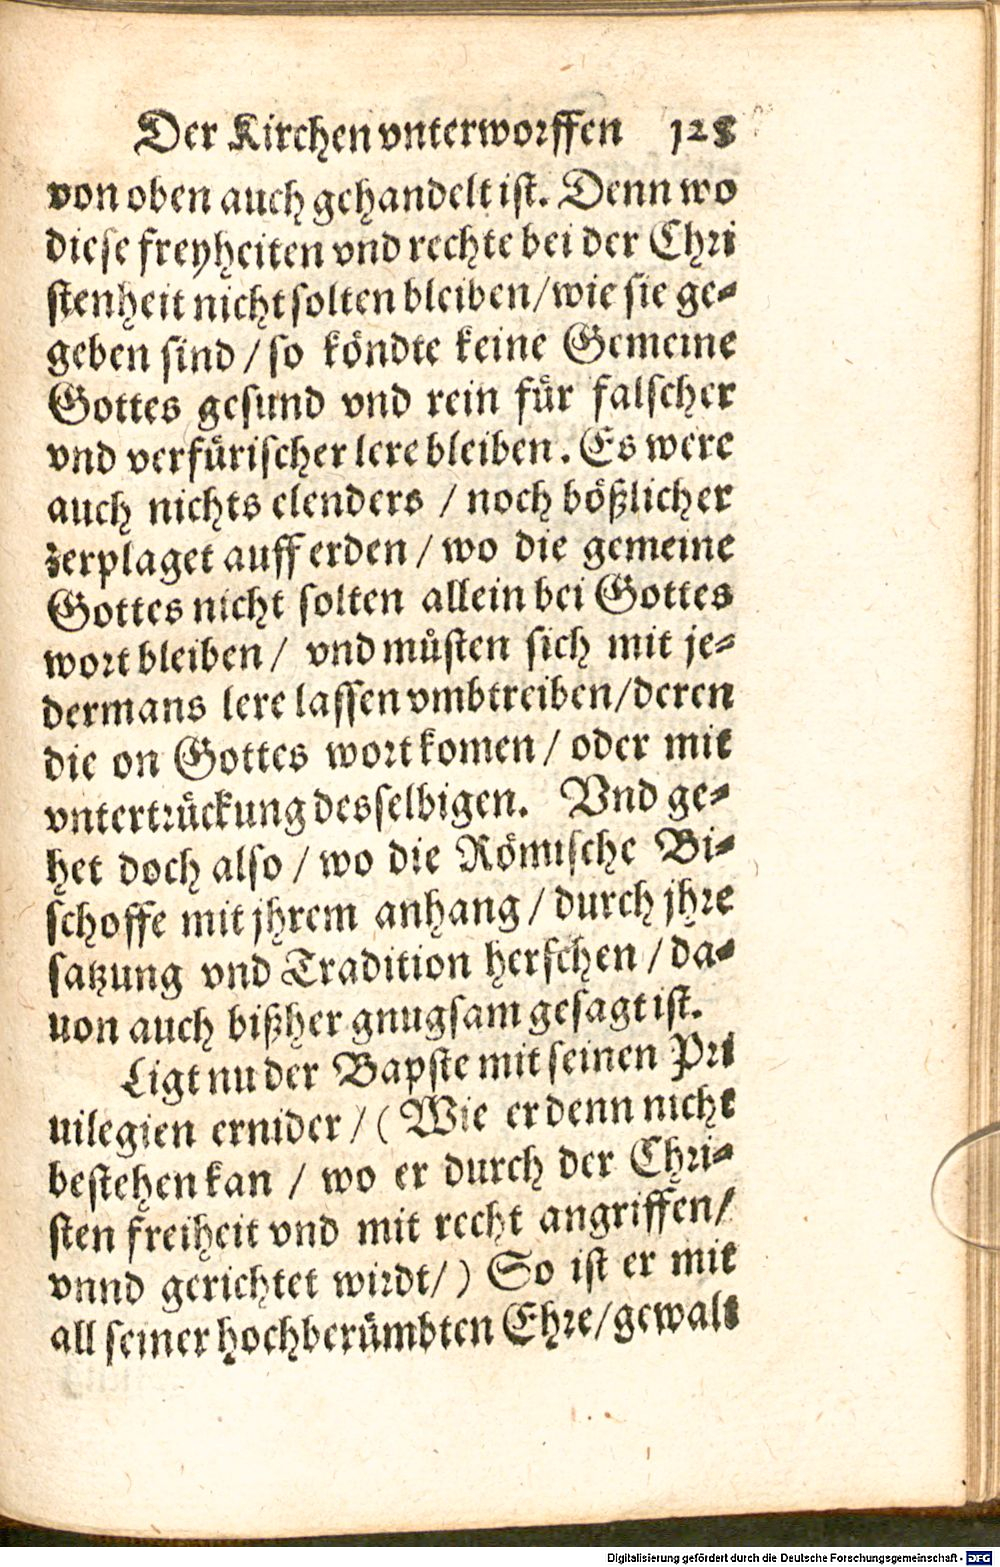 Der Kirchen vnterworffen 128
von oben auch gehandelt ist. Denn wo
diese freyheiten vnd rechte bei der Chri
stenheit nicht solten bleiben/wie sie ge-
geben sind / so köndte keine Gemeine
Gottes gesund vnd rein für falscher
vnd verfürischer lere bleiben. Es were
auch nichts elenders / noch bößlicher
zerplaget auff erden / wo die gemeine
Gottes nicht solten allein bei Gottes
wort bleiben / vnd müsten sich mit je-
dermans lere lassen vmbtreiben/deren
die on Gottes wort komen / oder mit
vntertrückung desselbigen. Vnd ge-
het doch also / wo die Römische Bi-
schoffe mit jhrem anhang / durch jhre
satzung vnd Tradition herschen / da-
uon auch bißher gnugsam gesagt ist.
Ligt nu der Bapste mit seinen Pri
uilegien ernider / (Wie er denn nicht
bestehen kan / wo er durch der Chri-
sten freiheit vnd mit recht angriffen/
vnnd gerichtet wirdt/) So ist er mit
all seiner hochberümbten Ehre/gewalt
Digitalisierung gefördert durch die Deutsche Forschungsgemeinschaft - DFG